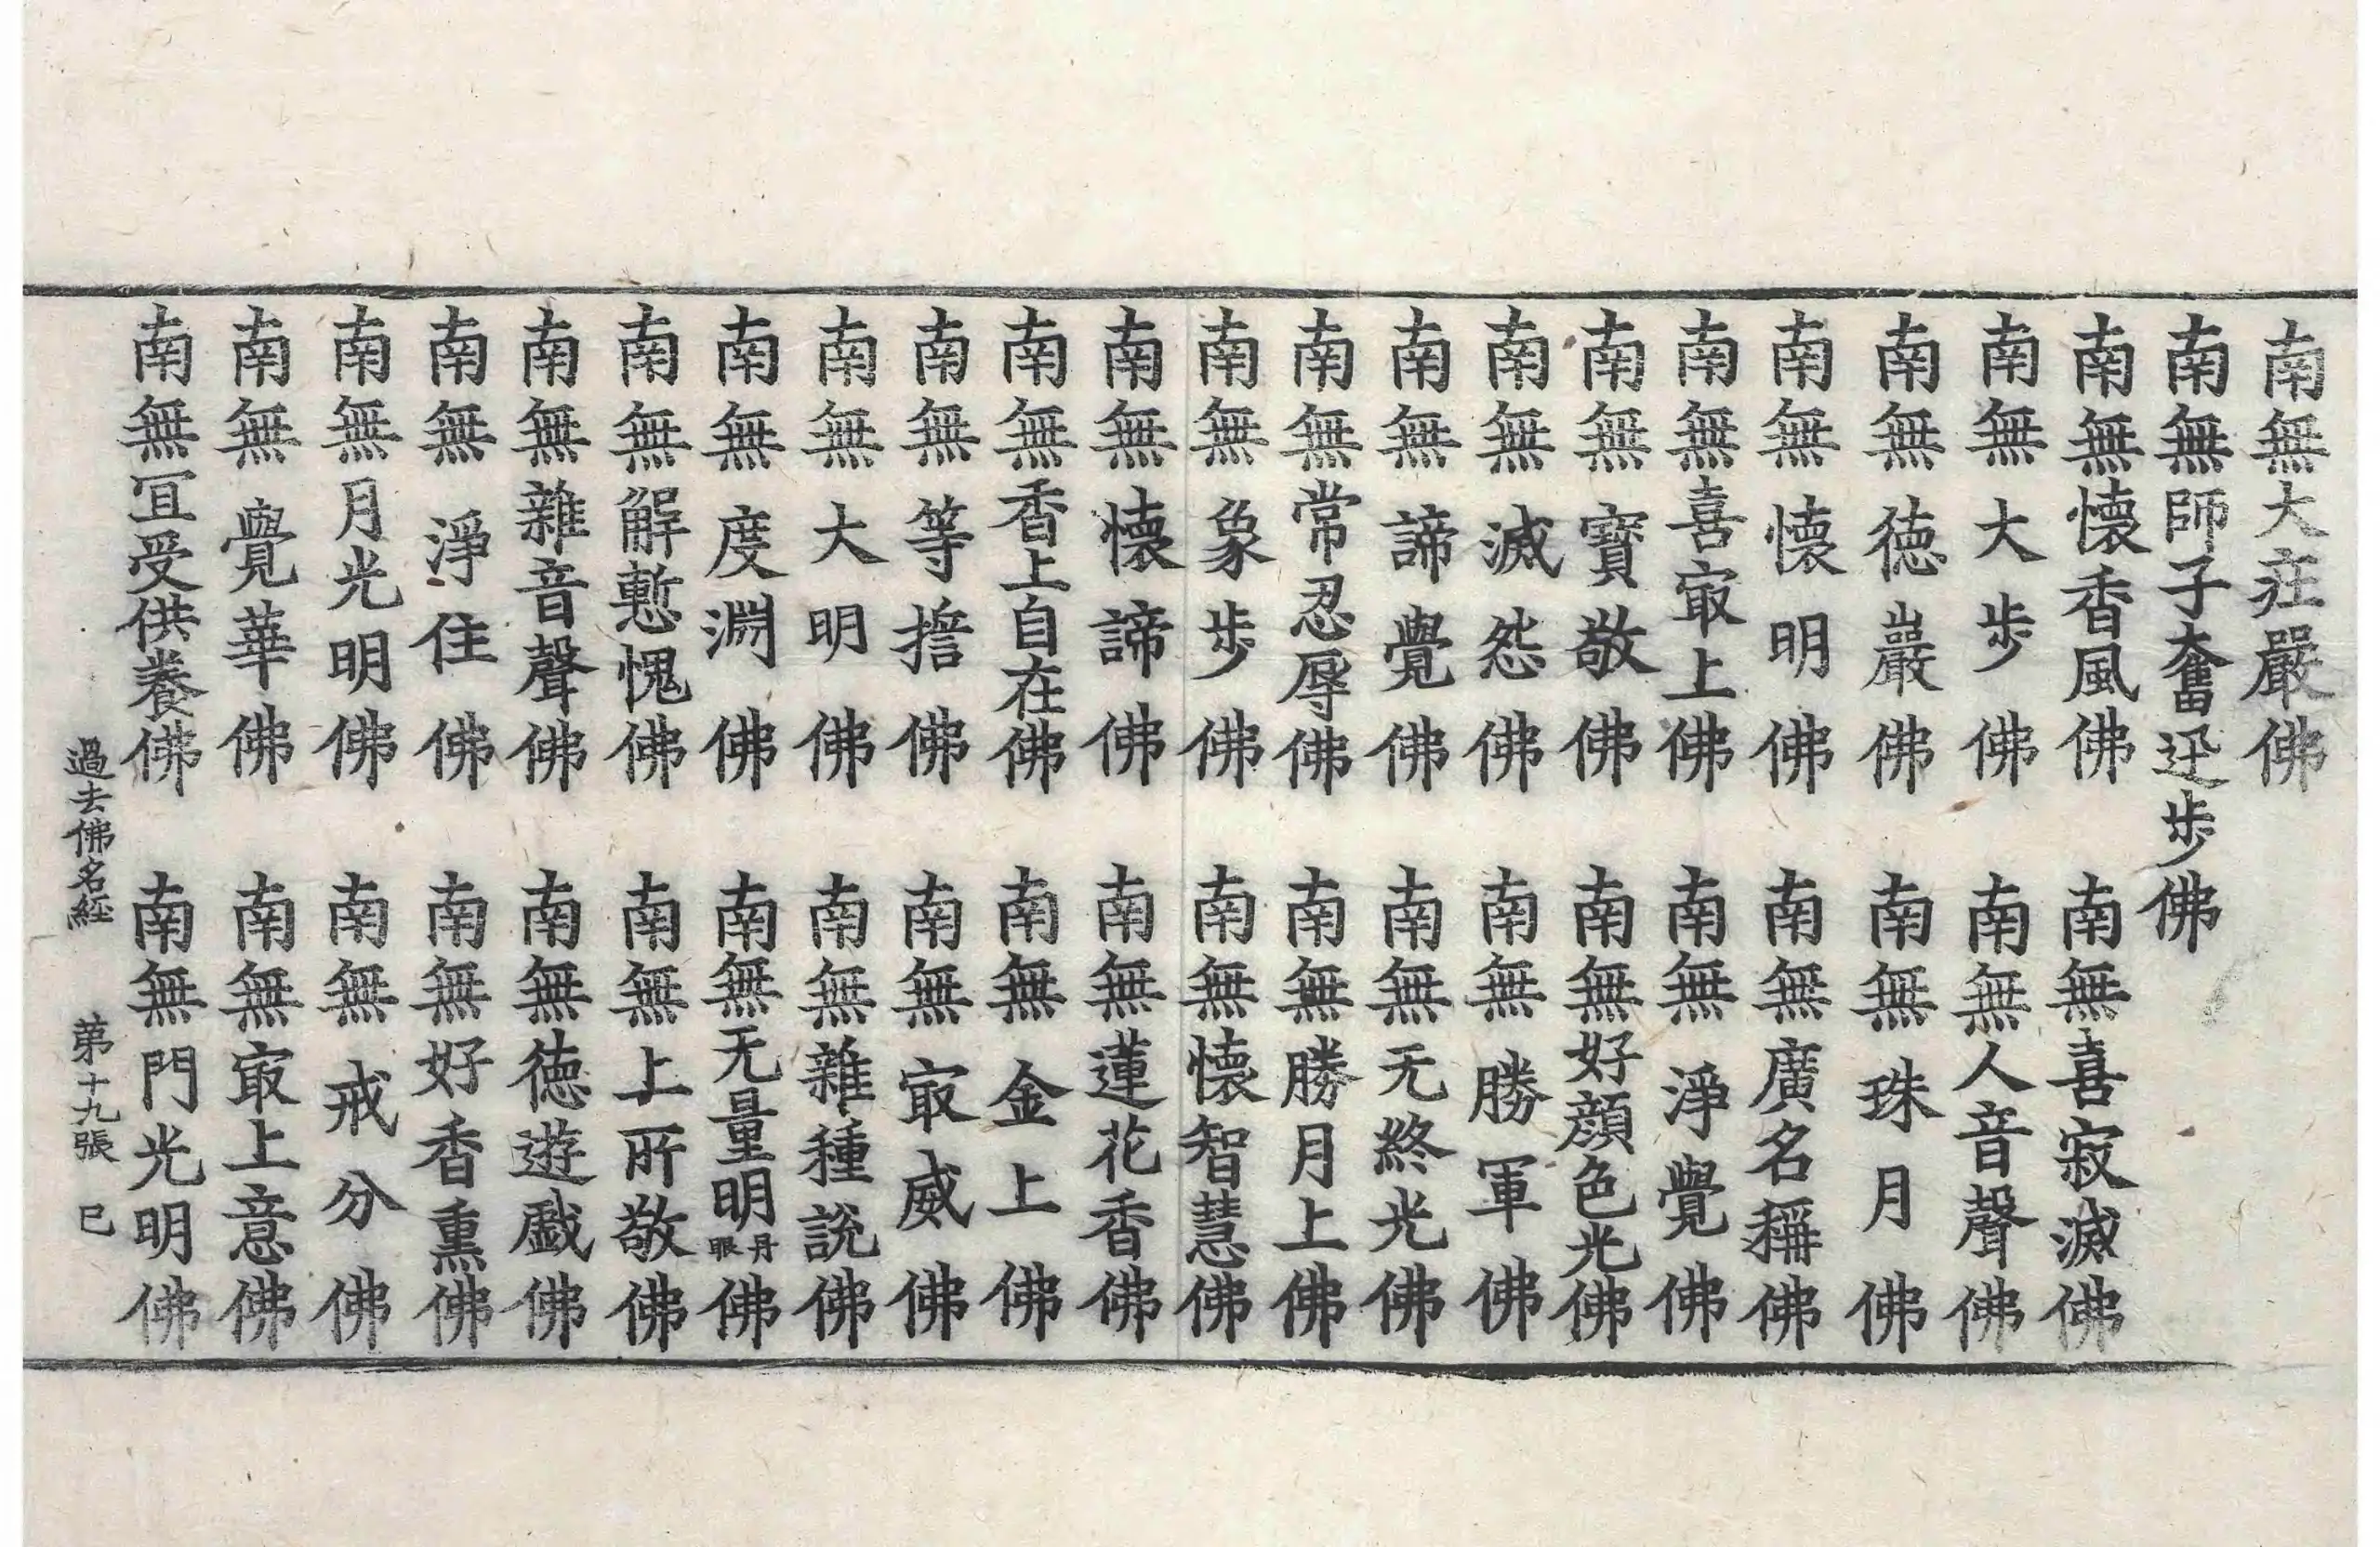 南無大庄嚴佛
南無師子奮迅步佛
南無懐香風佛 南無喜寂滅佛
南無大步佛 南無人音聲佛
南無德巖佛 南無珠月佛
南無懐明佛 南無廣名稱佛
南無喜㝡上佛 南無淨覺佛
南無寶敬佛 南無好顔色光佛
南無滅怨佛 南無勝軍佛
南無諦覺佛 南無无終光佛
南無常忍辱佛 南無勝月上佛
南無象步佛 南無懐智慧佛
南無懐諦佛 南無蓮花香佛
南無香上自在佛 南無金上佛
南無等擔佛 南無㝡威佛
南無大明佛 南無雜種說佛
南無度淵佛 南無无量明丹眼佛
南無解慙愧佛 南無上所敬佛
南無雜音聲佛 南無德遊戱佛
南無淨住佛 南無好香熏佛
南無月光明佛 南無戒分佛
南無覺華佛 南無㝡上意佛
南無冝受供養佛 南無門光明佛
過去佛名經 苐十九張 巳